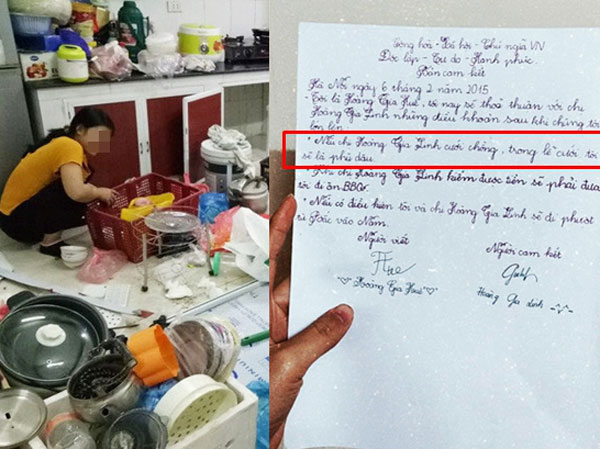 Cộng hoà - Xã hội - Chủ nghĩa VN
Độc lập - Tự do - Hạnh phúc
Bản cam kết
Hà Nội ngày 6 tháng 2 năm 2015
- Tôi là Hoàng Gia Huê, tôi nay sẽ thoả thuận với chị
Hoàng Gia Linh những điều khoản sau khi chúng tôi
lớn lên
* Nếu chị Hoàng Gia Linh cưới chồng, trong lễ cưới tôi
sẽ là phù dâu
* Khi chị Hoàng Gia Linh kiếm được tiền sẽ phải đưa
tôi đi ăn BBQ.
* Nếu có điều kiện tôi và chị Hoàng Gia Linh sẽ đi phượt
từ Bắc vào Nam.
Người viết
Người cam kết
Hue
Hoàng Gia Huê
Hoàng Gia Linh